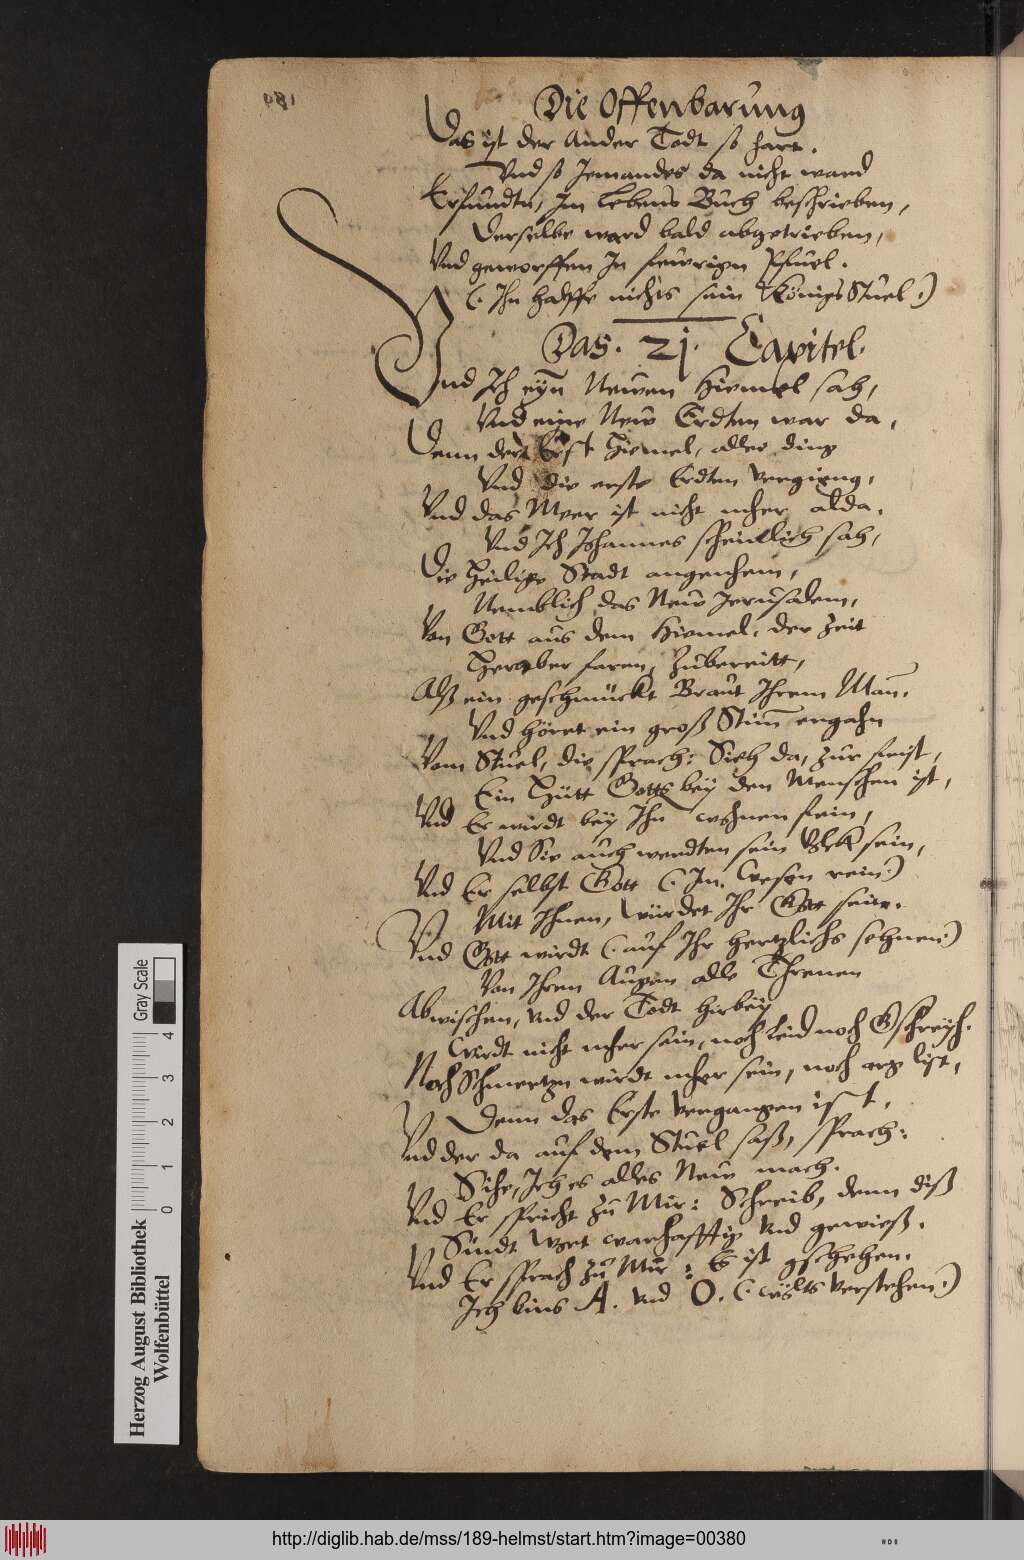 Die Offenbarung
Das ist der Ander Todt so hart.
Vnd so Jemandes da nicht ward
Erfundtn, Im Lebens Buch beschrieben,
Derselbe ward bald abgetrieben,
Vnd geworffen In fewrign Pfuel.
(. Ihn halffe nichts sein Königs Stuel .)
Das. 21. Capitel.
Vnd Ich eyn Newen Himmel sah,
Vnd eine New Erdten war da,
Denn der Erst Himel, aller ding
Vnd die erste Erdten vergieng,
Vnd das Meer ist nicht mher alda.
Vnd Ich Johannes scheinlich sah,
Die Heilige Stadt angenehem,
Nemblich das New Jerusalem,
Von Gott aus dem Himmel, der Zeit
Heraber faren, Zubereitt,
Alß ein geschmückt Braut Ihrem Man.
Vnd höret ein groß Stim ergahn
Vom Stuel, die sprach: Sieh da, zur frist,
Ein Hütt Gotts bey den Menschen ist,
Vnd Er wirdt bey Ihn wohnen fein,
Vnd Sie auch werdten sein Volck sein,
Vnd Er selbst Gott (. Im Wesen rein .)
Mit Ihnen, würdet Ihr Gott sein.
Vnd Gott wirdt (. auf Ihr hertzlichs sehnen .)
Von Ihren Augen alle Threnen
Abwischen, vnd der Todt hirbey
Wirdt nicht mher sein, noch Leid noch Gschreyh.
Noch Schmertzn wirdt mher sein, noch arg list,
Denn das Erste vergangen ist,
Vnd der da auf dem Stuel saß, sprach:
Sihe, Ich es alles New mach.
Vnd Er spricht zu Mir: Schreib, denn diß
Sindt Wort warhafftig vnd gewieß.
Vnd Er sprach zu Mir: Es ist gschehen.
Ich bins A. vnd O. (. wölts verstehen .)
Herzog August Bibliothek
Wolfenbüttel
Gray Scale
0 1 2 3 4
http://diglib.hab.de/mss/189-helmst/start.htm?image=00380